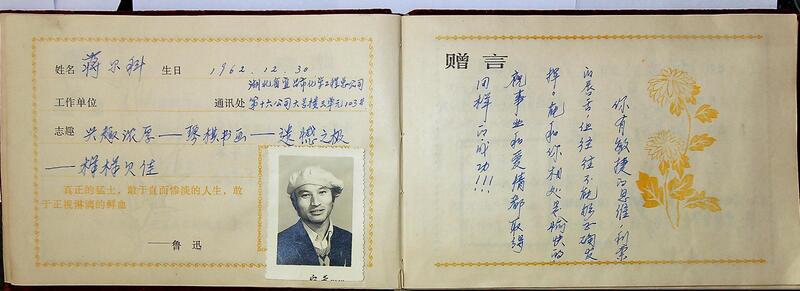 姓名 蒋尔科 生日 1962.12.30
湖北省宜昌市化学工程总公司
工作单位 通讯处 第十六公司大员楼2单元103号
志趣 兴趣浓厚——琴棋书画——遗憾之极
——样样欠佳
真正的猛士,敢于直面惨淡的人生,敢
于正视淋漓的鲜血
——鲁迅
赠言
你有敏捷的思维,利索
的唇舌但往往不能够正确发
挥。能和你相处是愉快的
祝事业和爱情都取得
同样的成功!!!